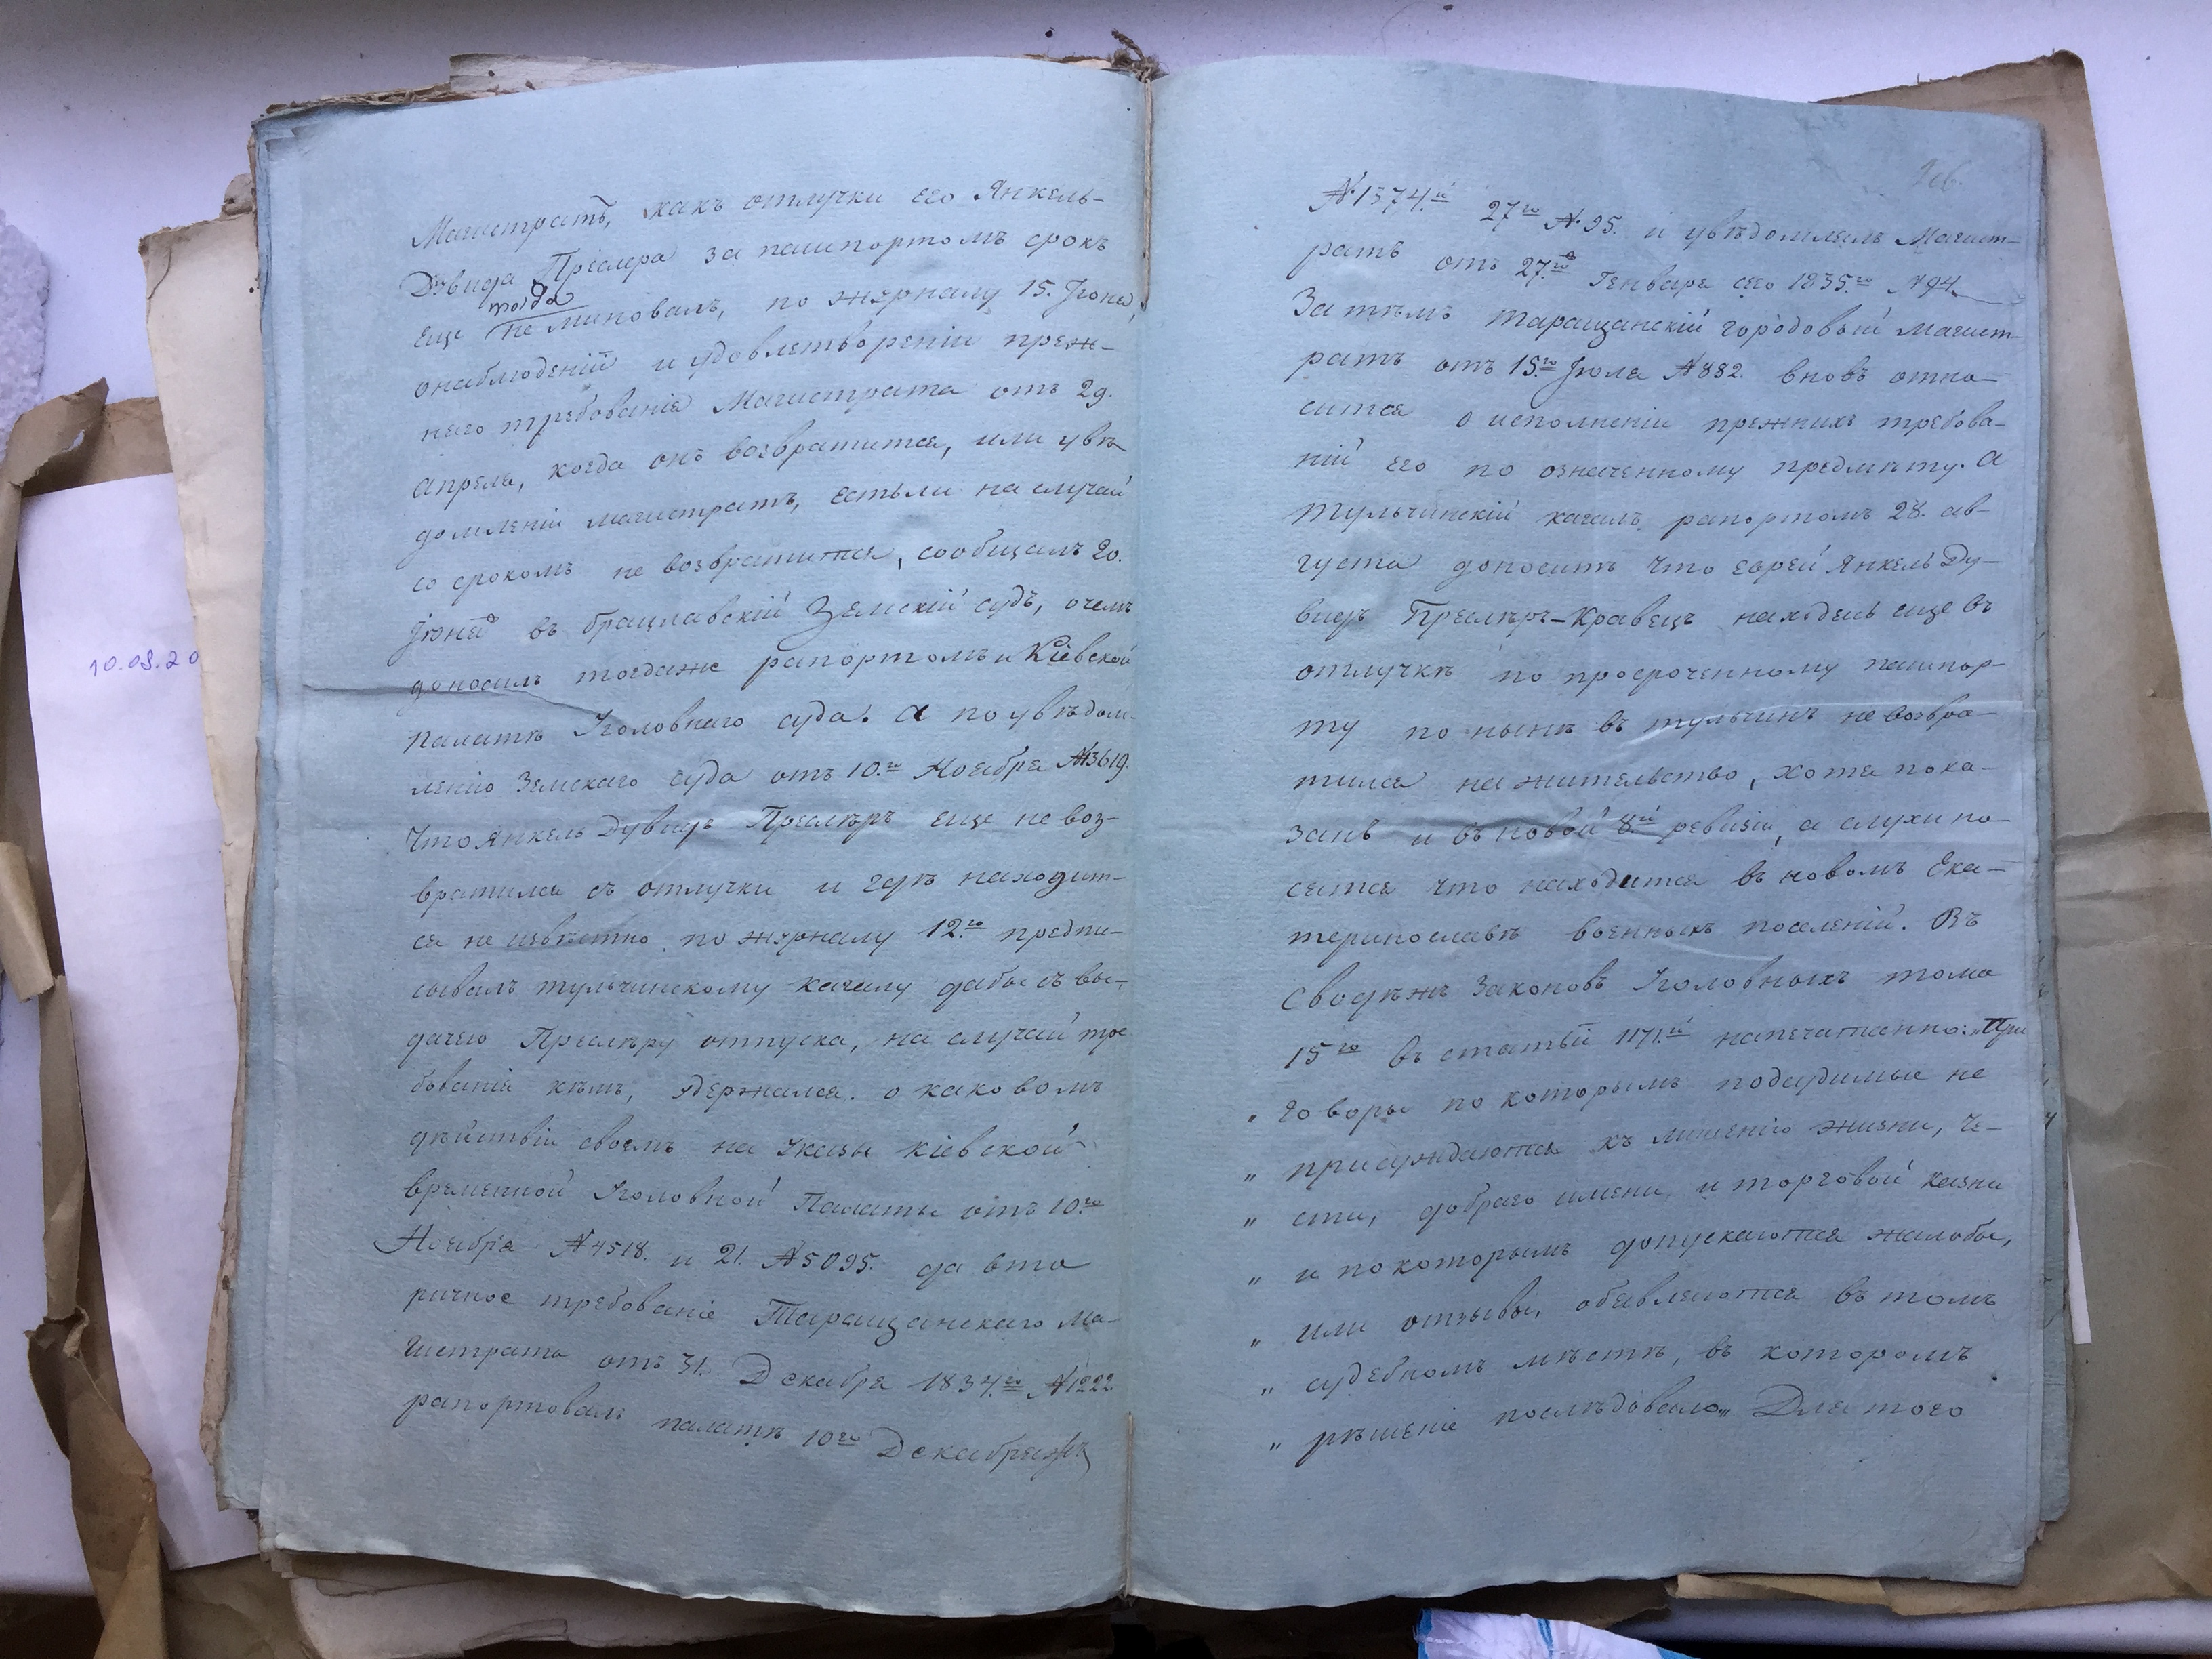 Магистратъ, какъ отлучки его Янкель-
Дувида Преслера за пашпортомъ срокъ
тогда
еще не миновалъ, по журналу 15. Іюня,
онаблюденіи и удовлетвореніи преж-
няго требованія Магистрата отъ 29.
апреля, когда онъ возвратится, или увѣ
домленіи магистратъ, естьли на случай
со срокомъ не возвратится, сообщалъ 20.
Іюня въ брацлавскій Земскій судъ, очемъ
доносилъ тогдаже рапортомъ и Кіевской
палатѣ Уголовнаго суда. а по увѣдом-
ленію Земскаго суда отъ 10.го Ноября №13619.
что Янкель Дувидъ Преслѣръ еще не воз-
вратился съ отлучки и гдѣ находит-
ся не извѣстно по журналу 12.го предпи-
сывалъ тульчинскому кагалу дабы съ вы-
дачею Преслѣру отпуска, на случай тре
бованія кѣмъ, удержался. о каковомъ
дѣйствіи своемъ на указы кіевской
временной Уголовной Палаты отъ 10.го
Ноября №4518. и 21. №5095. да вто
ричное требованіе Таращанскаго Ма-
гистрата отъ 31. Декабря 1834.го №1222
рапортовалъ палатѣ 10го Декабря
№1374.й 27го №95. и увѣдомлялъ Магист-
ратъ отъ 27.го Генваря сего 1835.го №94
За тѣмъ таращанскій городовый магист-
ратъ отъ 15.го Іюля №882. вновь отно-
сится о исполненіи прежнихъ требова-
ній его по означенному предмѣту. а
тульчинскій кагалъ рапортомъ 28. ав-
густа доноситъ что еврей Янкель Ду-
видъ Преслѣръ-Кравецъ находясь еще въ
отлучкѣ по просроченному пашпор-
ту по нынѣ въ тульчинъ не возвра-
тился на жительство, хотя пока-
занъ и въ новой 8.й ревизіи, а слухи но-
сятся что находится въ новомъ Ека-
теринославѣ военныхъ поселеній. Въ
Сводѣ жъ Законовъ Уголовныхъ тома
15го въ статьи 1171.й напечатанно: „При
„ говоры по которымъ подсудимые не
„ присуждаются къ лишенію жизни, че-
„ сти, добраго имени и торговой казни
„ и по которымъ допускаются жалобы,
„ или отзывы, объявляются въ томъ
„ судебномъ мѣстѣ, въ которомъ
„ рѣшеніе послѣдовало„ Для того
10.03.20